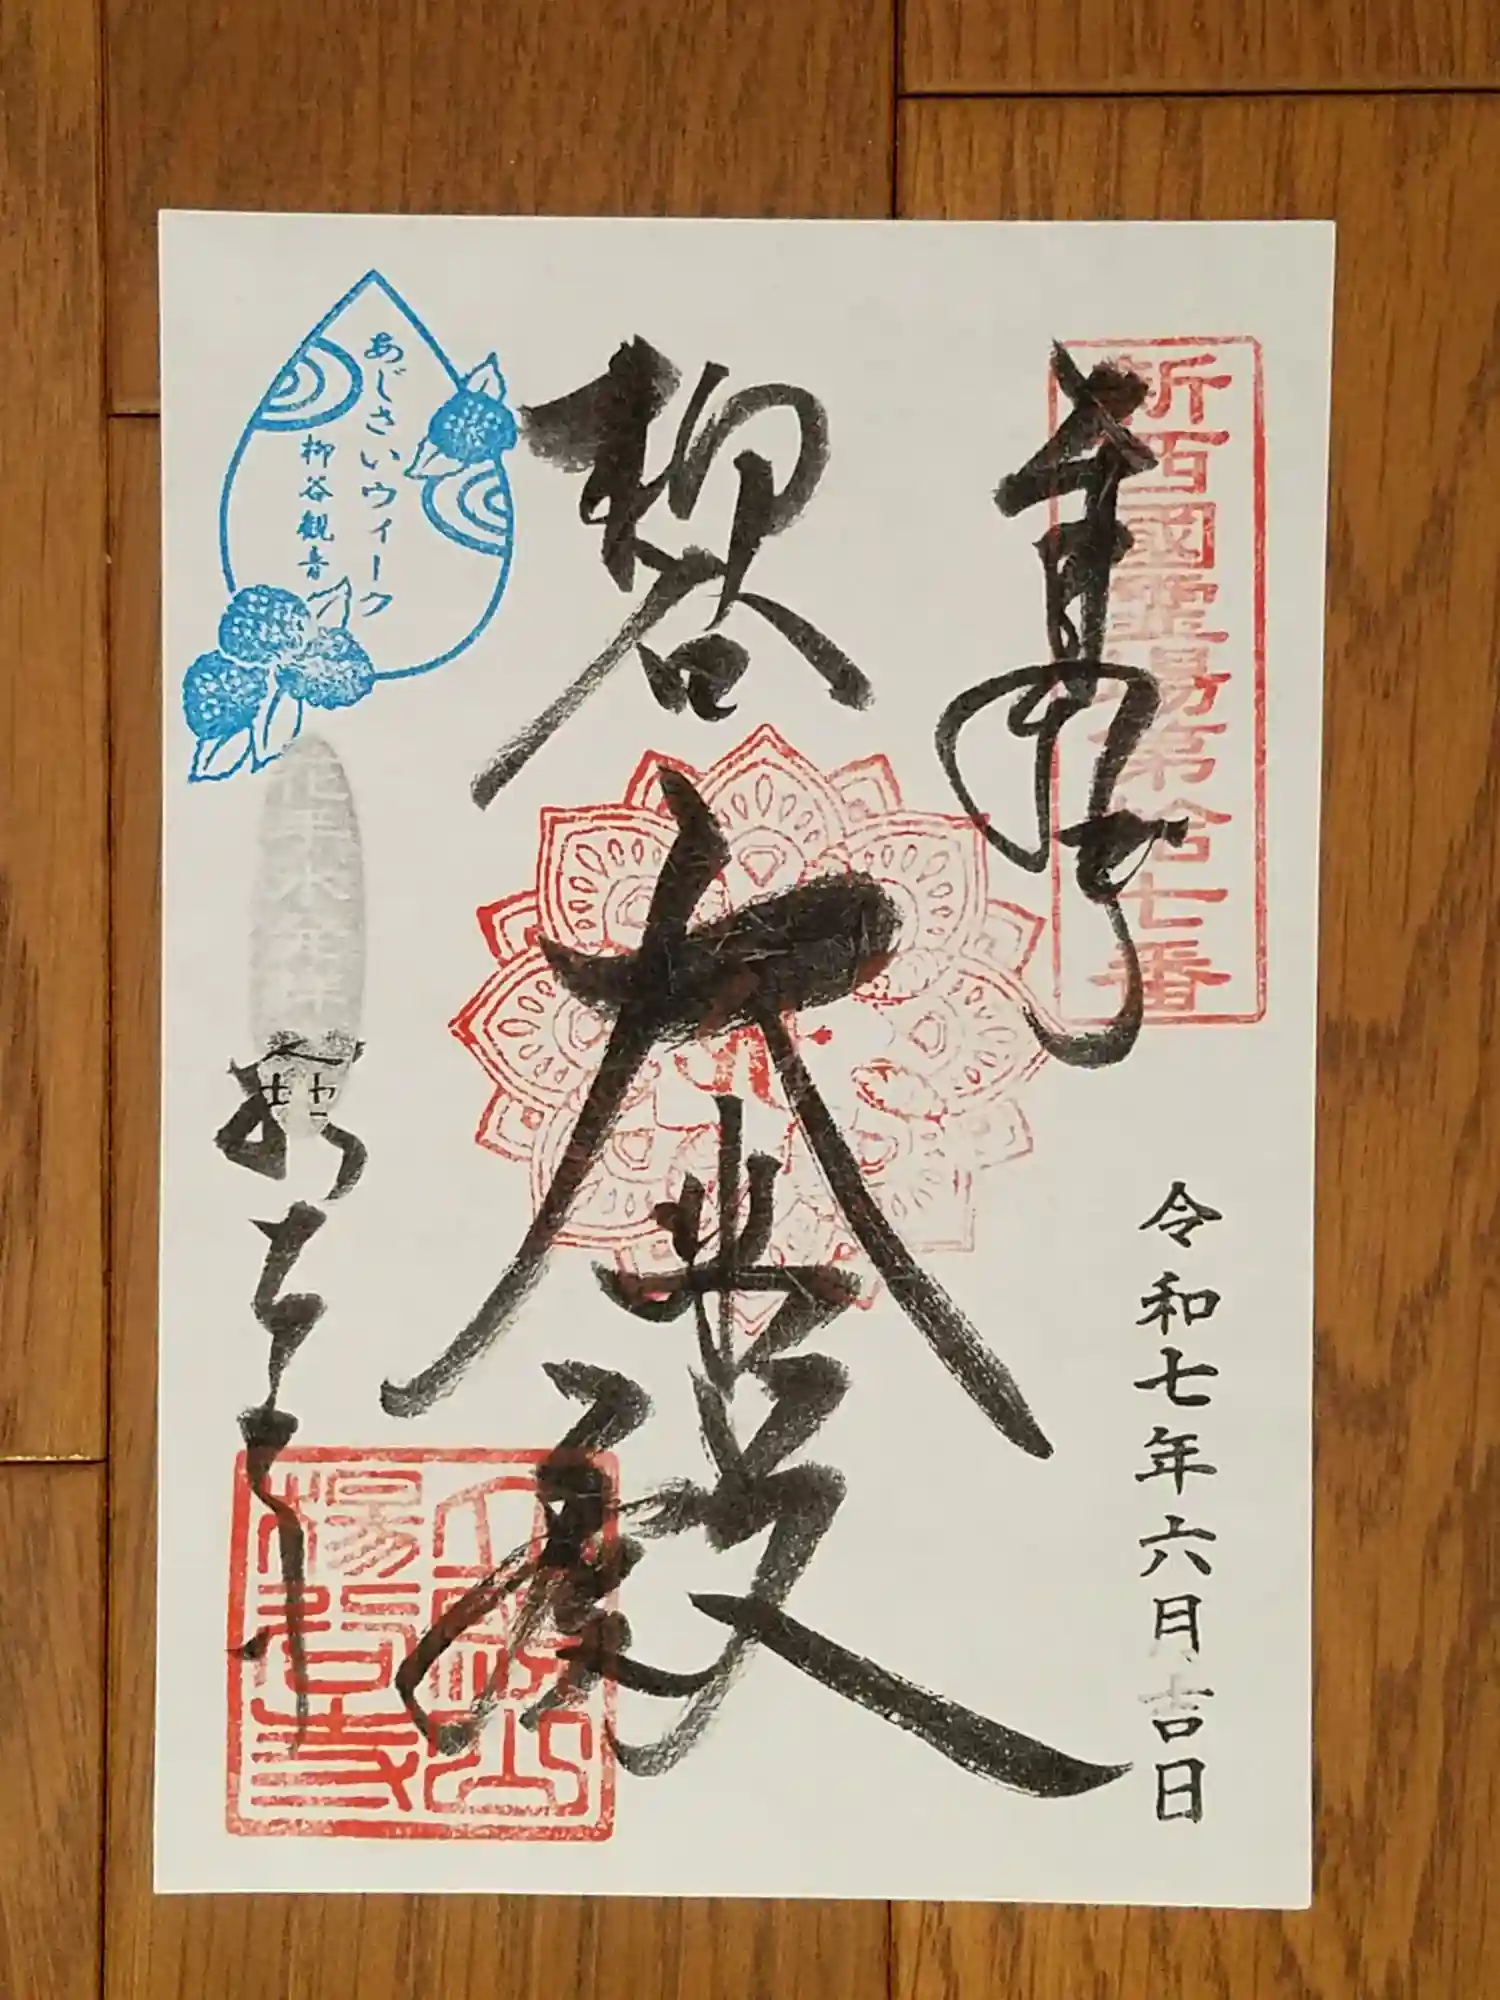 奉拝
新西國霊場第拾七番
令和七年六月吉日
柳谷
大悲殿
あじさいウィーク
柳谷観音
花手水
楊谷寺